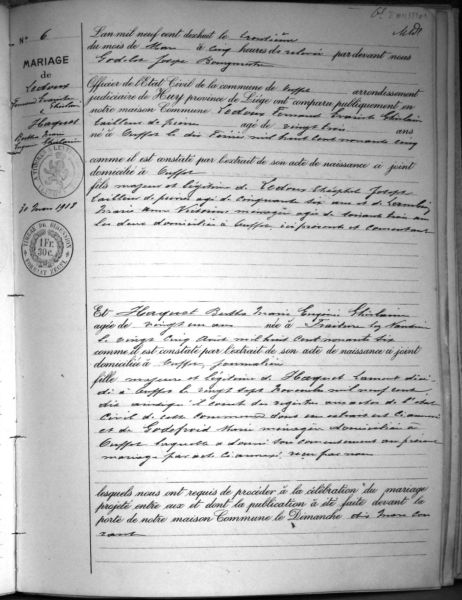 N° 6
MARIAGE
de
Ledoux
Fernand Franchs
Ghislain
&
Haquet
Bertha Marie
Eugenie Ghislaine
30 Mars 1918
TIMBRE DE DIMENSION
1 Fr.
30 c.
L'an mil neuf cent dixhuit le trentième
du mois de Mars à cinq heures de relevée par devant nous
Godelet Joseph Bourgmestre
Officier de l'Etat Civil de la commune de Ouffet arrondissement
judiciaire de Huy province de Liége ont comparu publiquement en
notre maison Commune Ledoux Fernand Ghislain
tailleur de pierre agé de vingt trois ans
né à Ouffet le dix mil huit cent nonante cinq
comme il est constaté par l'extrait de son acte de naissance ci joint
domicilié à Ouffet
fils majeur et légitime de Ledoux Théophil Joseph
tailleur de pierre agé de cinquante six ans et de
Marie Anne Victorine ménagère agée de soixante trois ans
les deux domiciliés à Ouffet, ici présents et consentant
Et Haquet Bertha Marie Eugénie Ghislaine
agée de vingt un ans née à
le vingt cinq Août mil huit cent nonante six
comme il est constaté par l'extrait de son acte de naissance ci joint
domiciliée à Ouffet, journalière
fille majeure et légitime de Haquet Laurent décé-
dé à Ouffet le vingt sept Novembre mil neuf cent
dix ainsi qu'il conste du registre aux actes de l'état
Civil de cette Commune dont un extrait est ci annexé
et de Godefroid Marie ménagère domiciliée à
Ouffet laquelle a donné son consentement au présent
mariage par acte ci annexé, reçu par nous
lesquels nous ont requis de procéder à la célébration du mariage
projeté entre eux et dont la publication à été faite devant la
porte de notre maison Commune le Dimanche dix Mars cou
rant